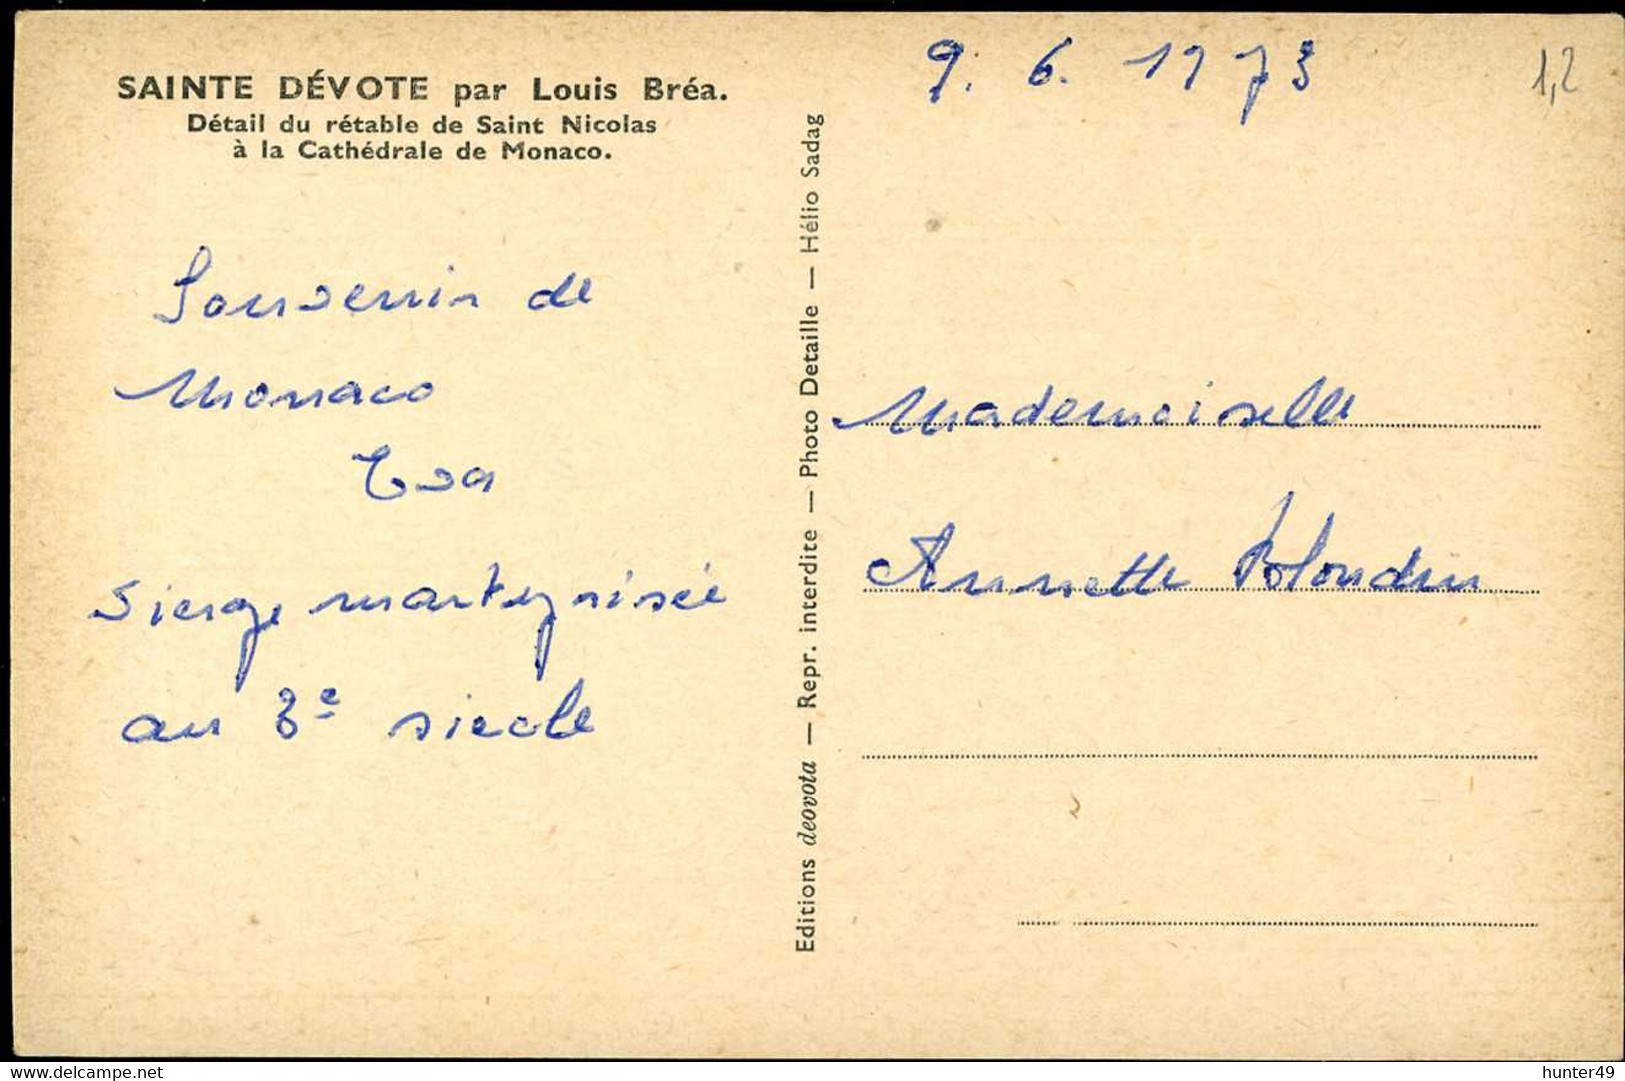 SAINTE DÉVOTE par Louis Bréa.
Détail du rétable de Saint Nicolas
à la Cathédrale de Monaco.
Souvenir de
Monaco
Eva
vierge martyrisée
au 3e siecle
Editions deovota — Repr. interdite — Photo Detaille — Hélio Sadag
9. 6. 1973
1,2
Mademoiselle
Annette Blondin
delcampe.net
hunter49